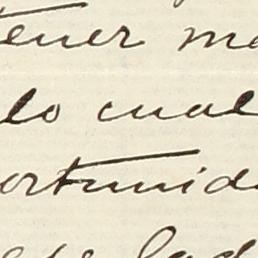 tener ma
lo cual
ortunida